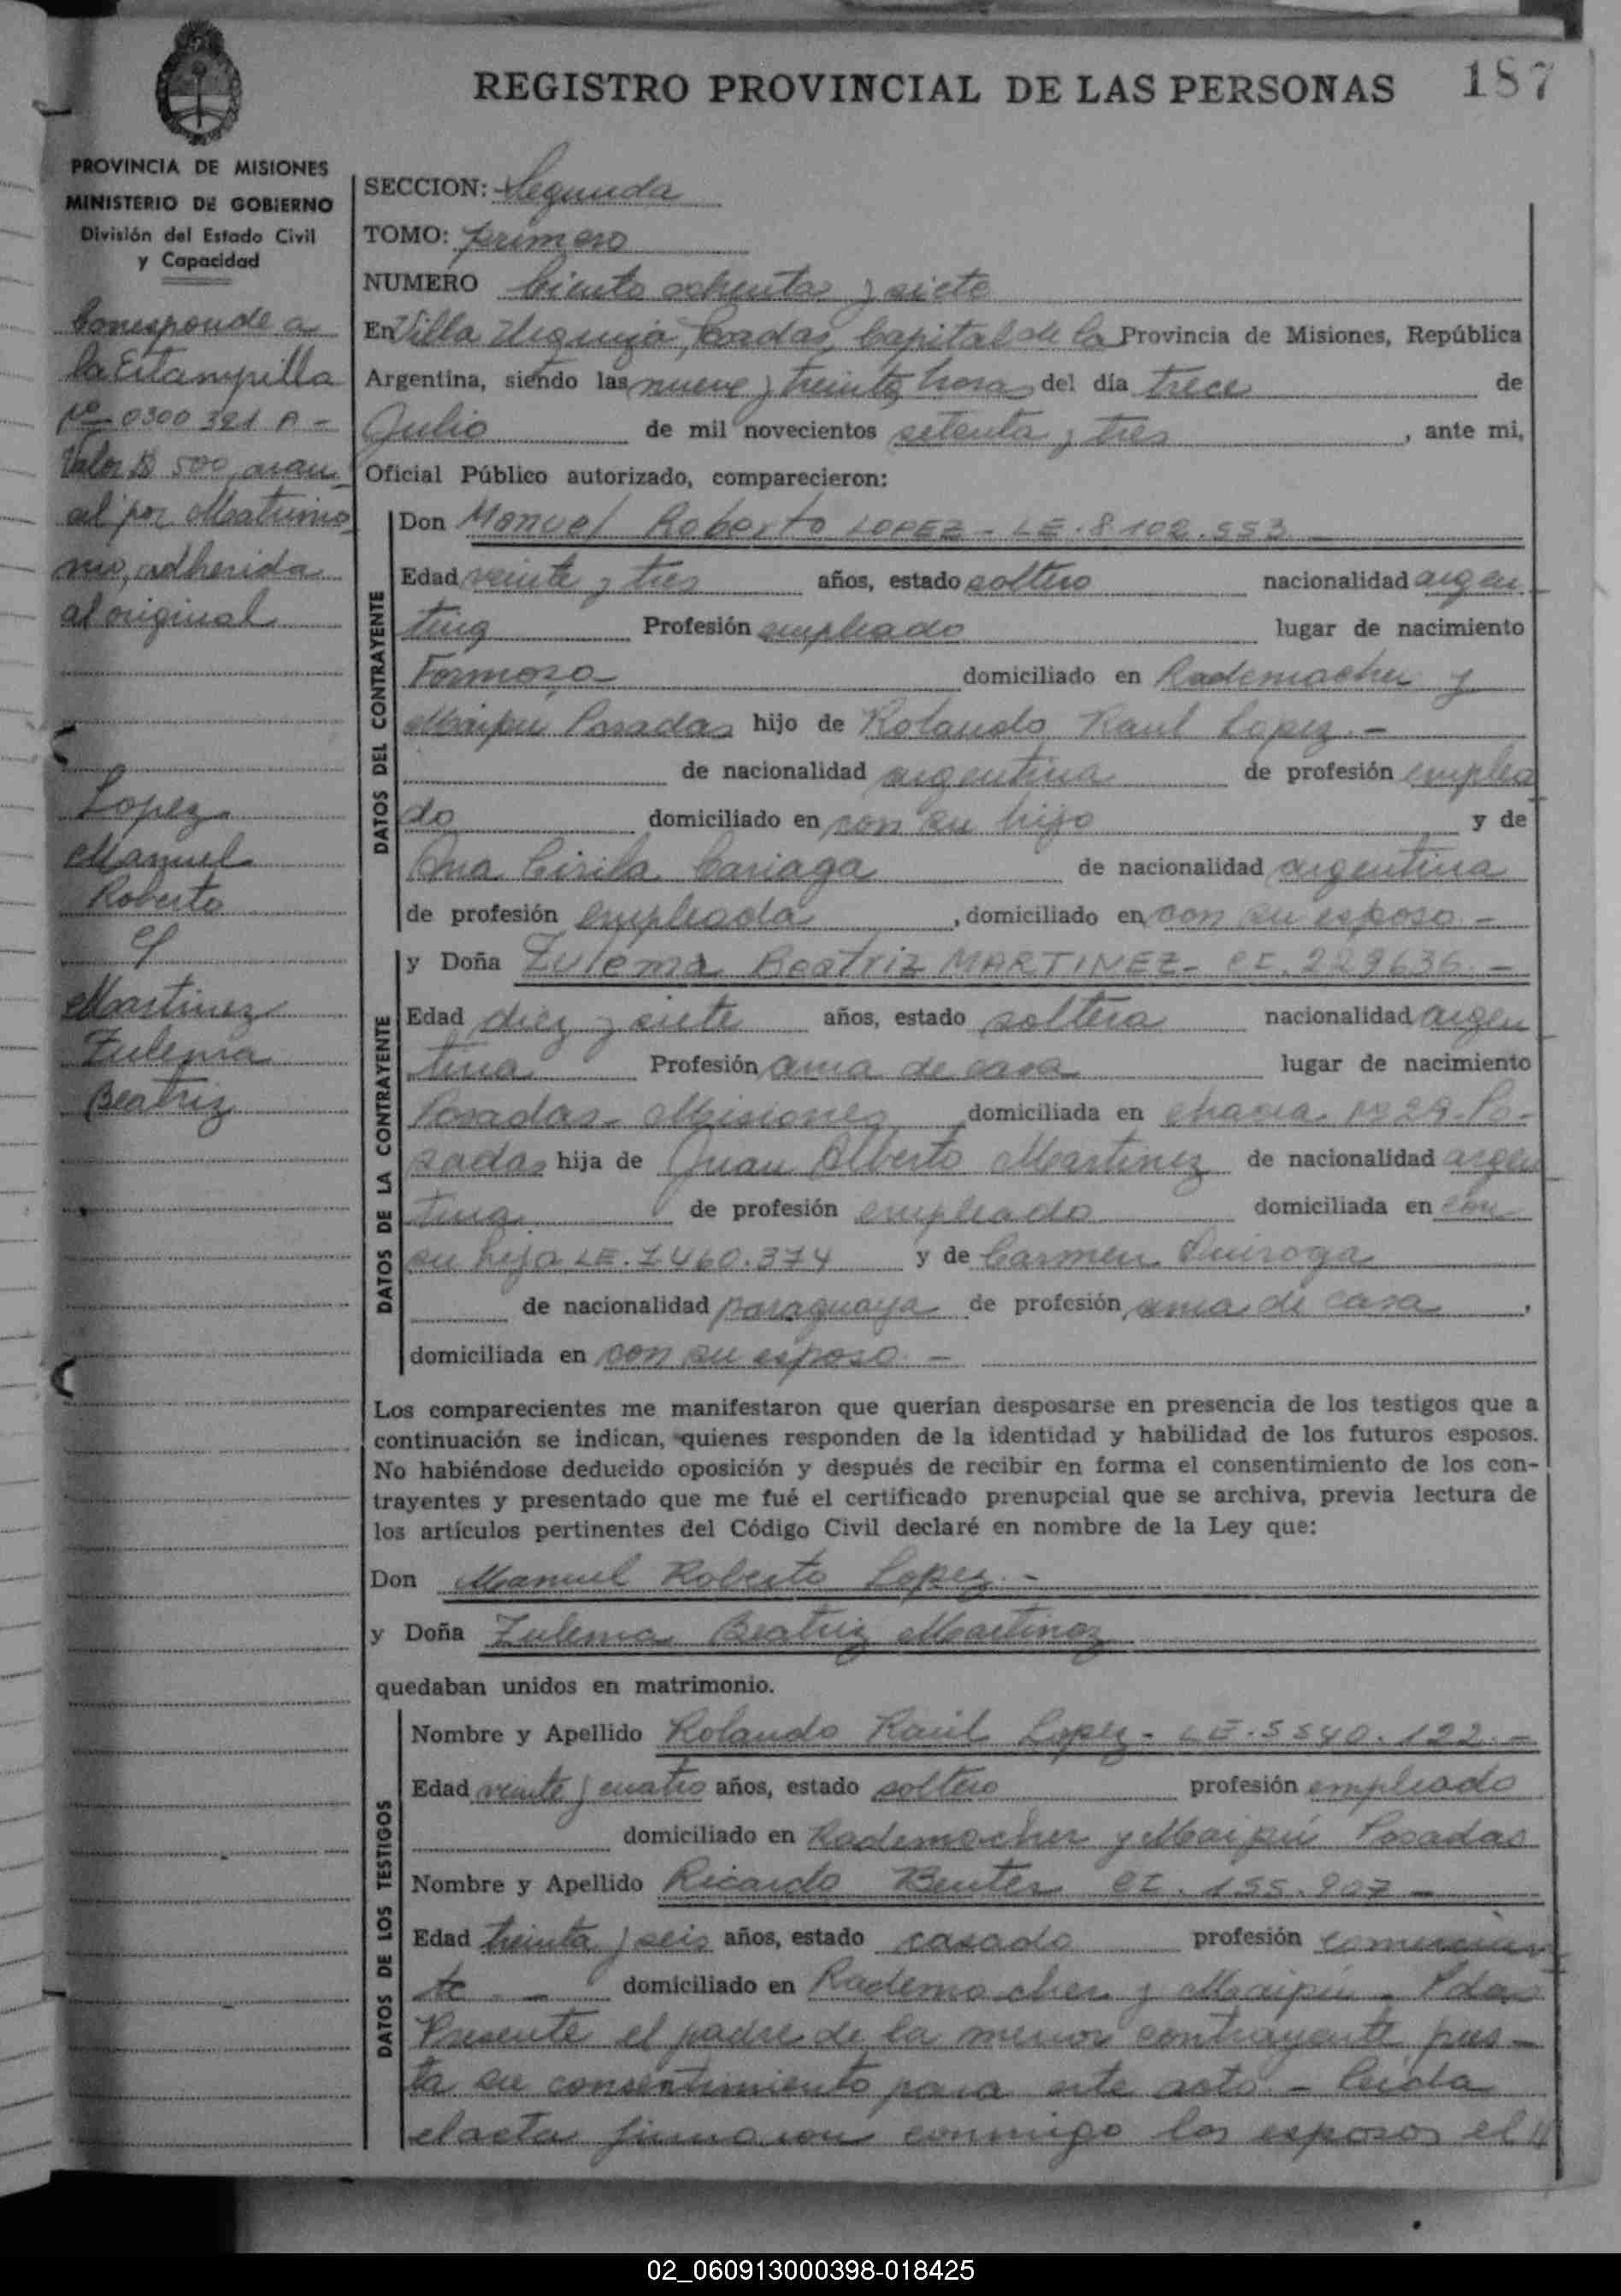 REGISTRO PROVINCIAL DE LAS PERSONAS 187
PROVINCIA DE MISIONES
MINISTERIO DE GOBIERNO
División del Estado Civil
y Capacidad
Corresponde a
la Estampilla
Nº 0300 321 A -
Valor $ 500, aran
cel por Matrimo
nio, adherida
al original
Lopez
Manuel
Roberto
y
Martinez
Zulema
Beatriz
SECCION: Segunda
TOMO: primero
NUMERO Ciento ochenta y siete
En Villa Urquiza, Posadas, Capital de la Provincia de Misiones, República
Argentina, siendo las nueve y treinta horas del día trece de
Julio de mil novecientos setenta y tres, ante mi,
Oficial Público autorizado, comparecieron:
DATOS DEL CONTRAYENTE
Don Manuel Roberto LOPEZ - LE. 8.102.553
Edad veinte y tres años, estado soltero nacionalidad argen
tina Profesión empleado lugar de nacimiento
Formosa domiciliado en Rademacher y
Maipu Posadas hijo de Rolando Raul Lopez. -
de nacionalidad argentina de profesión emplea
do domiciliado en con su hijo y de
Ana Cirila Cariaga de nacionalidad argentina
de profesión empleada, domiciliado en con su esposo -
DATOS DE LA CONTRAYENTE
y Doña Zulema Beatriz MARTINEZ - CI. 229636. -
Edad diez y siete años, estado soltera nacionalidad argen
tina Profesión ama de casa lugar de nacimiento
Posadas - Misiones domiciliada en chacra Nº 29. Po-
sadas hija de Juan Alberto Martinez de nacionalidad argen
tina de profesión empleado domiciliada en con
su hija LE. 7.460.374 y de Carmen Quiroga
de nacionalidad paraguaya de profesión ama de casa,
domiciliada en con su esposo. -
Los comparecientes me manifestaron que querían desposarse en presencia de los testigos que a
continuación se indican, quienes responden de la identidad y habilidad de los futuros esposos.
No habiéndose deducido oposición y después de recibir en forma el consentimiento de los con-
trayentes y presentado que me fué el certificado prenupcial que se archiva, previa lectura de
los artículos pertinentes del Código Civil declaré en nombre de la Ley que:
Don Manuel Roberto Lopez. -
y Doña Zulema Beatriz Martinez
quedaban unidos en matrimonio.
DATOS DE LOS TESTIGOS
Nombre y Apellido Rolando Raúl Lopez - LE. 5540.122. -
Edad veinte y cuatro años, estado soltero profesión empleado
domiciliado en Rademacher y Maipú Posadas
Nombre y Apellido Ricardo CI. 155.907 -
Edad treinta y seis años, estado casado profesión comercian
te - domiciliado en Rademacher y Maipú - Pdas
Presente el padre de la menor contrayente pres-
ta su consentimiento para este acto - Leída
el acta firmaron conmigo los esposos el
02_060913000398-018425